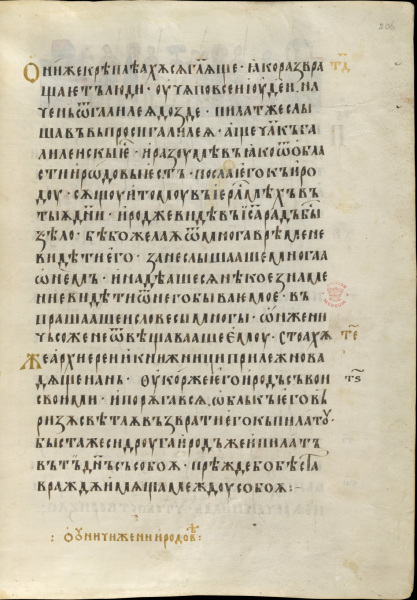 206
Ѻниже крѣплѣахѫсѧ гл҃ѧще · ꙗко развра тд
щаетъ люди · оучѧ по всеи іоудеи · на
ченъ ѿ галилеѧ до зде · пилатже слы
шавъ въпроси галилеѧ · аще чл҃къ га
лиленскыи е҅ · и разоумѣвъ ꙗко ѿ обла
сти иродовы естъ · посла его къ иро
доу · сѫщоу и томоу въ іерл҃мѣхъ въ
тыѧ дн҃и · иродже видѣвъ іс҃а радъ бы҅
ѕѣло · бѣ бо желаѧ ѿ многа врѣмене
видѣти его · зане слышааше многаа
ѡ немъ · и надѣашесѧ нѣкое знаме
ние видѣти ѿ него бываемое · въ
прашааше и словесы многы · ѡнже ничи
съоже не ѿвѣщавааше емоу · стоахѫ те
же архиереи и книжници прилежно ва
дѧще нань · оукорже его иродъ съ вои тѕ
своими · и порѫгавсѧ ѡблъкъ его въ
ризѫ свѣтлѫ възврати его къ пилатоу ·
быстаже си дроуга иродъже и пилатъ
въ тъ дн҃ь съ собоѫ · прѣжде бо бѣста
враждѫ имѫща междоу собоѫ :-
: ѡ уничижени иродовѣ :